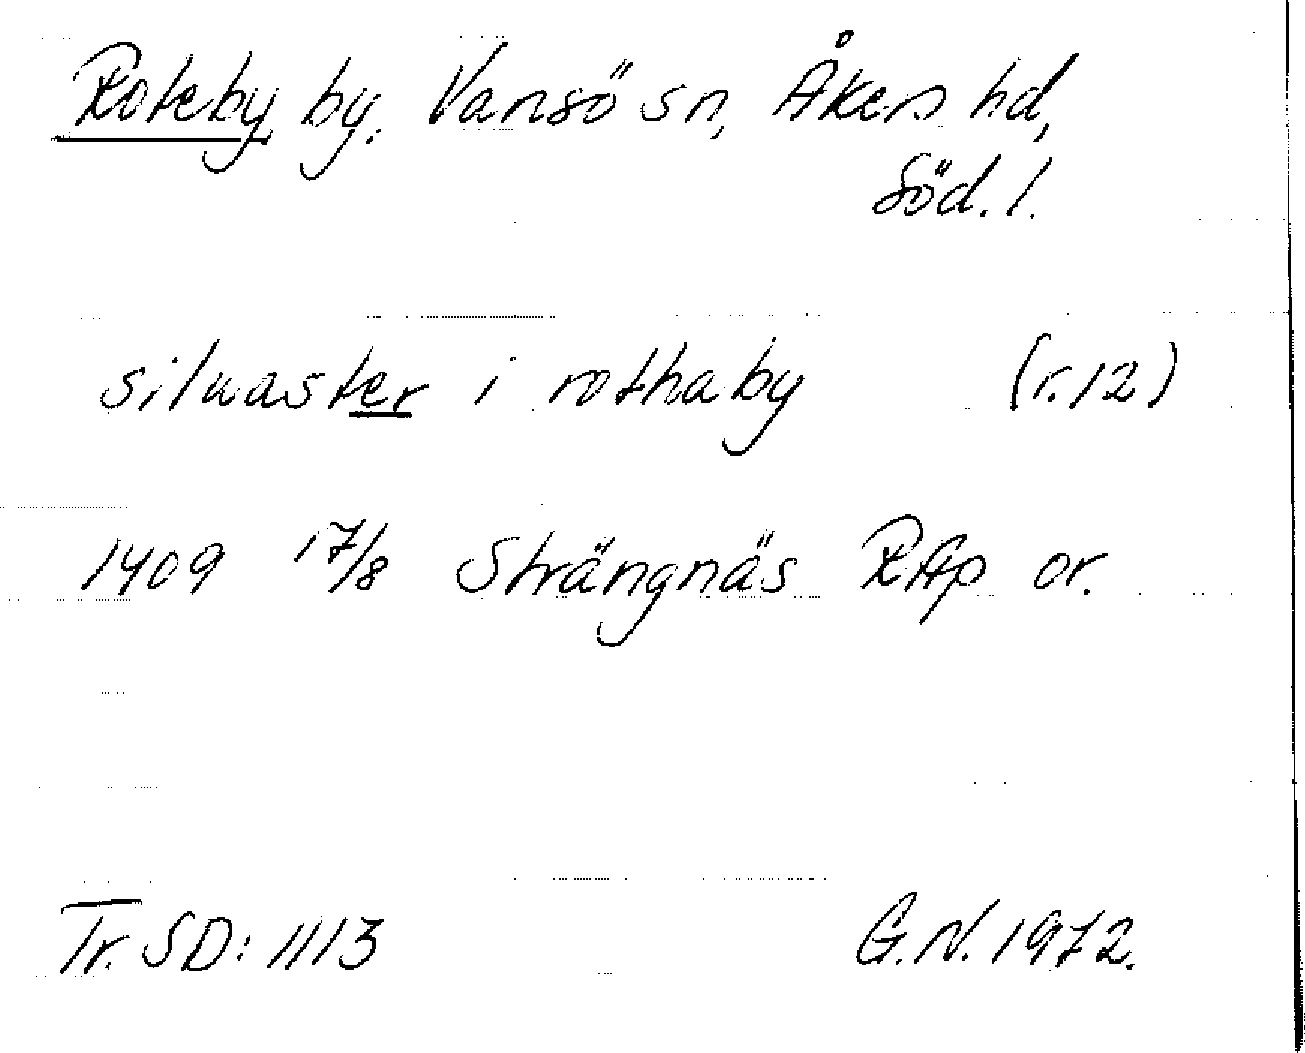 Roteby by, Vansö sn, Åkers hd,
Söd. l.
siluaster i rothaby (r. 12)
1409 17/8 Strängnäs RAp or.
Tr. SD: 1113 G.N. 1972.